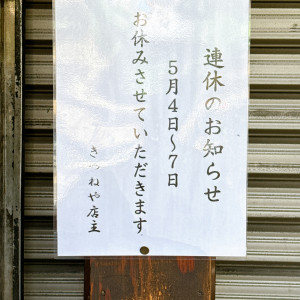 連休のお知らせ
5月4日〜7日
お休みさせていただきます
きつねや店主